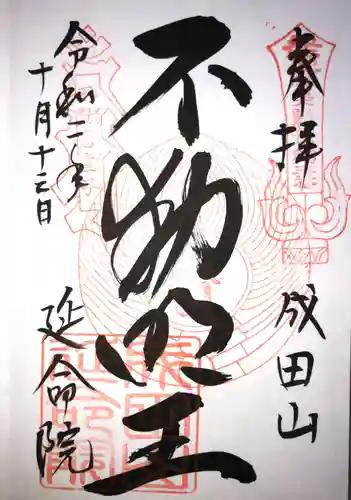 奉拝
成田山
不動明王
令和二年
十月十三日
延命院